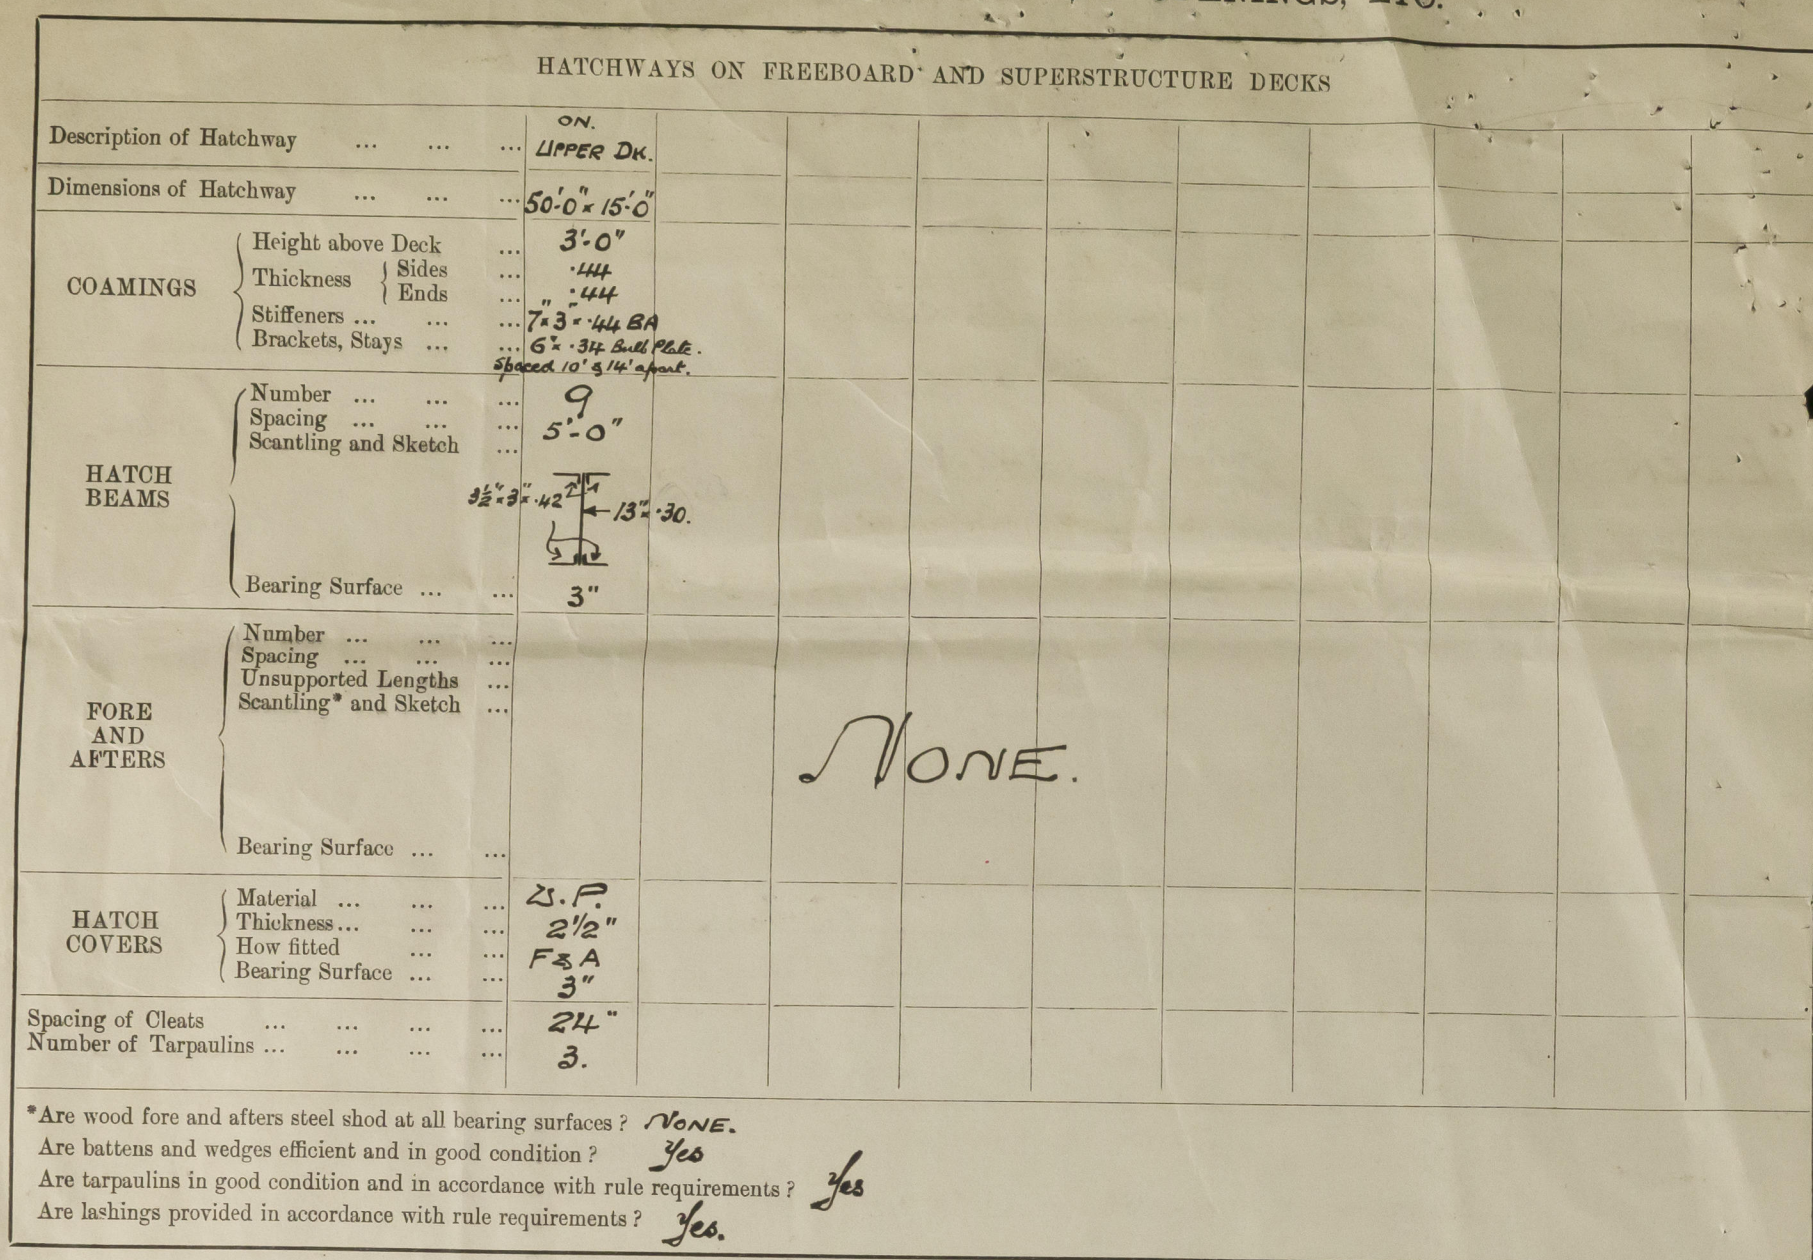 HATCHWAYS ON FREEBOARD AND SUPERSTRUCTURE DECKS
Description of Hatchway ... ... ... ON. UPPER DK.
Dimensions of Hatchway ... ... ... 50'-0" × 15'-0"
COAMINGS
Height above Deck ... 3'-0"
Thickness Sides ... .44
Ends ... .44
Stiffeners ... ... ... 7" × 3" × .44 BA
Brackets, Stays ... ... 6" × .34 Bulb Plate.
Spaced 10' & 14' apart.
HATCH BEAMS
Number ... ... ... 9
Spacing ... ... ... 5'-0"
Scantling and Sketch ...
3½" × 3" × .42
13" × .30.
Bearing Surface ... ... 3"
FORE AND AFTERS
Number ... ... ...
Spacing ... ... ...
Unsupported Lengths ...
Scantling* and Sketch ...
NONE.
Bearing Surface ... ...
HATCH COVERS
Material ... ... ... P.
Thickness ... ... ... 2 1/2"
How fitted ... ... F & A
Bearing Surface ... ... 3"
Spacing of Cleats ... ... ... ... 24"
Number of Tarpaulins ... ... ... ... 3.
*Are wood fore and afters steel shod at all bearing surfaces? NONE.
Are battens and wedges efficient and in good condition? Yes
Are tarpaulins in good condition and in accordance with rule requirements? Yes
Are lashings provided in accordance with rule requirements? Yes.